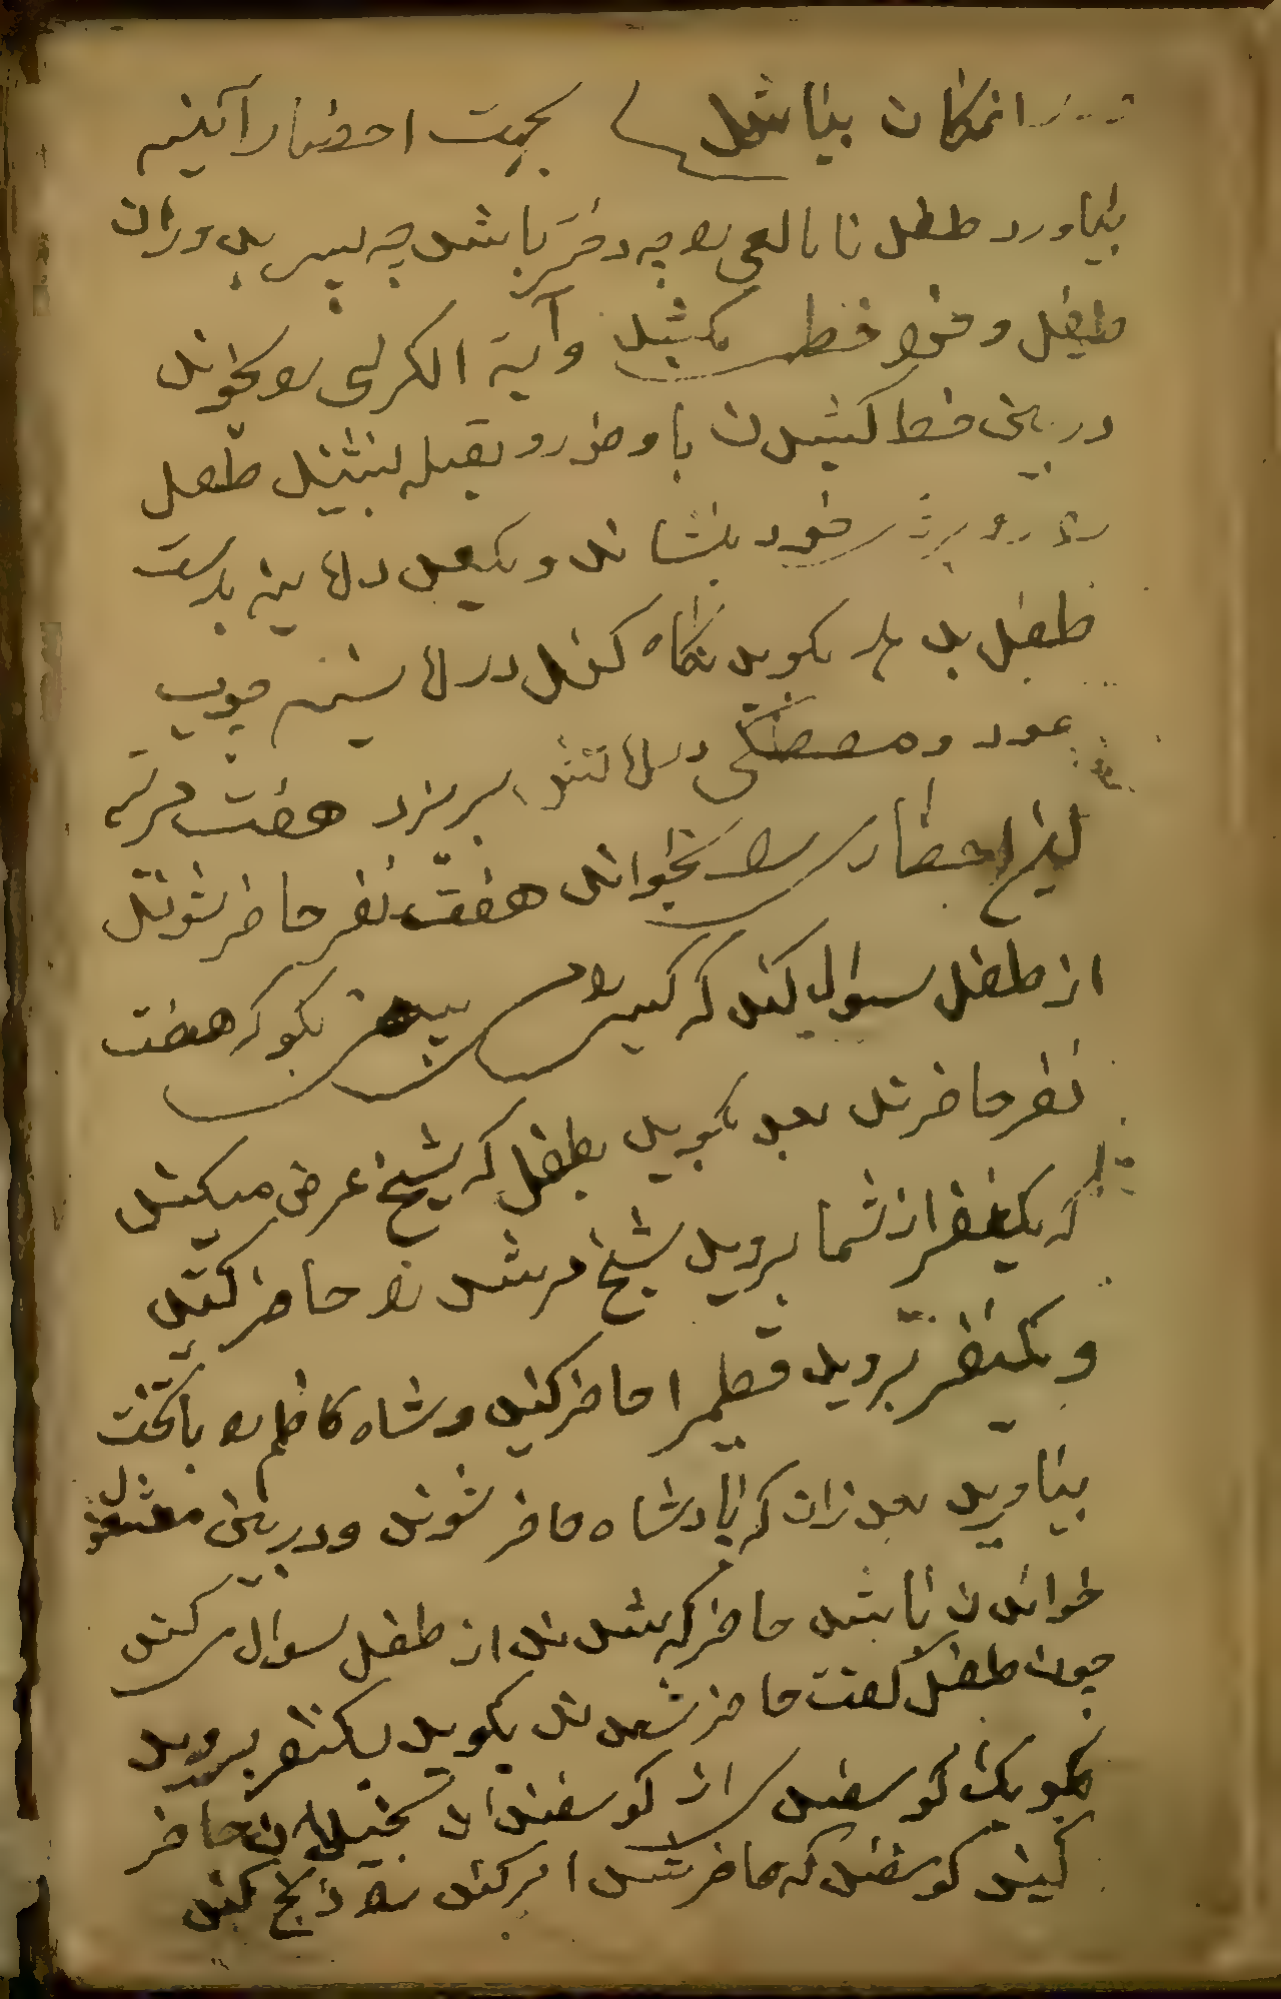 انمکان بنباشد بجهت احضار آئینه
بیاورد طفل نابالغی را چه دختر باشد چه پسر بدوران
طفل و خود خط بکشد و آیة الکرسی را بخواند
در بین خط کشیدن با وضو رو بقبله بنشیند طفل
رو بروی خود بنشاند و بکیعدد آینه بدست
طفل بدهد بگوید نگاه کند در آینه چوب
عود و مصطکی در آتش بریزد هفت مرتبه
این احضار را بخواند هفت نفر حاضر شوند
از طفل سوال کند که کسی را می بینی بگو که هفت
نفر حاضرند بعد بگوید بطفل که شیخ عرض میکند
که یکنفر از شما بروید شیخ مرشد را حاضر کنید
و یکنفر بروید قطمیر احاضر کنید و شاه کاظم را با تخت
بیاورید بعد زان که پادشاه حاضر شوند و در بین مشغول
خواندن باشد حاضر که شدند از طفل سوال کند
چون طفل گفت حاضر شدند بگوید یکنفر بروید
بگو یک گوسفند از گوسفندان حاضر
کنید گوسفند که حاضر شد امر کند ذبح کنند